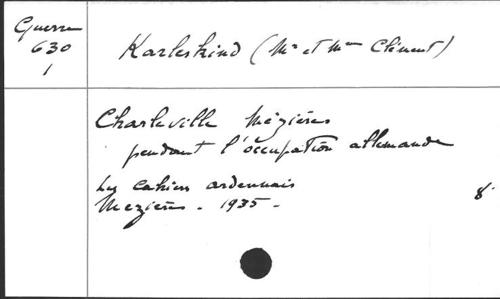 Guerre
630
1
Karleskind (Mr et Mme Clément)
Charleville Mézières
pendant l'occupation allemande
Les cahiers ardennais
Mezières - 1935 -
8°